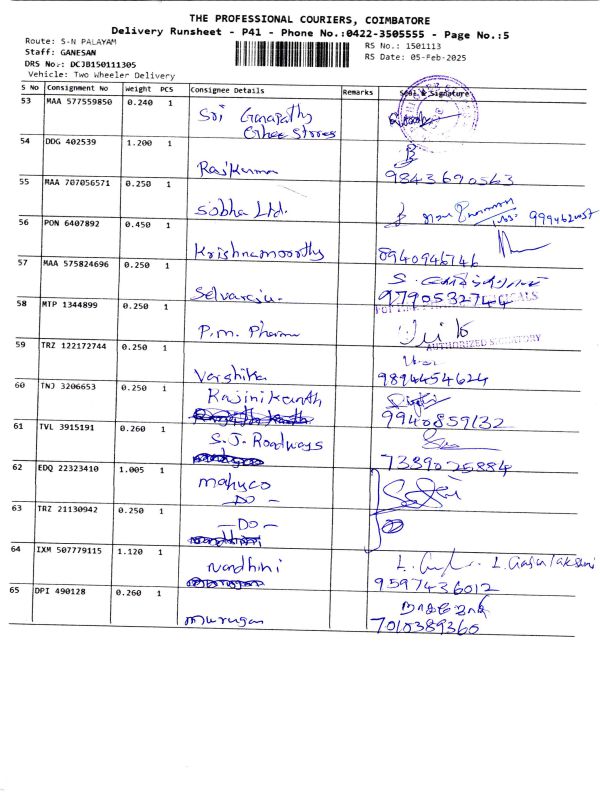 THE PROFESSIONAL COURIERS, COIMBATORE
Delivery Runsheet - P41 - Phone No.:0422-3505555 - Page No.:5
Route: S-N PALAYAM
RS No.: 1501113
Staff: GANESAN
RS Date: 05-Feb-2025
DRS No.: DCJB150111305
Vehicle: Two Wheeler Delivery
S No Consignment No Weight PCS Consignee Details Remarks Seal & Signature
53 MAA 577559850 0.240 1
Sri Ganapathy
Ghee Stores
54 DDG 402539 1.200 1
Rajkumar 9843690563
55 MAA 707056571 0.250 1
Sobha Ltd.
56 PON 6407892 0.450 1
Krishnamoorthy 8940946746
57 MAA 575824696 0.250 1
Selvaraju. 9790532744
58 MTP 1344899 0.250 1
P.M. Pharma
AUTHORIZED SIGNATORY
59 TRZ 122172744 0.250 1
Varshika 9894454624
60 TNJ 3206653 0.250 1
Rajinikanth 9940859132
61 TVL 3915191 0.260 1
S.J. Roadways 7339025884
62 EDQ 22323410 1.005 1
Mahyco
-DO-
63 TRZ 21130942 0.250 1
-DO-
64 IXM 507779115 1.120 1
Nandhini 9597436012
65 DPI 490128 0.260 1
Murugan 7010389360